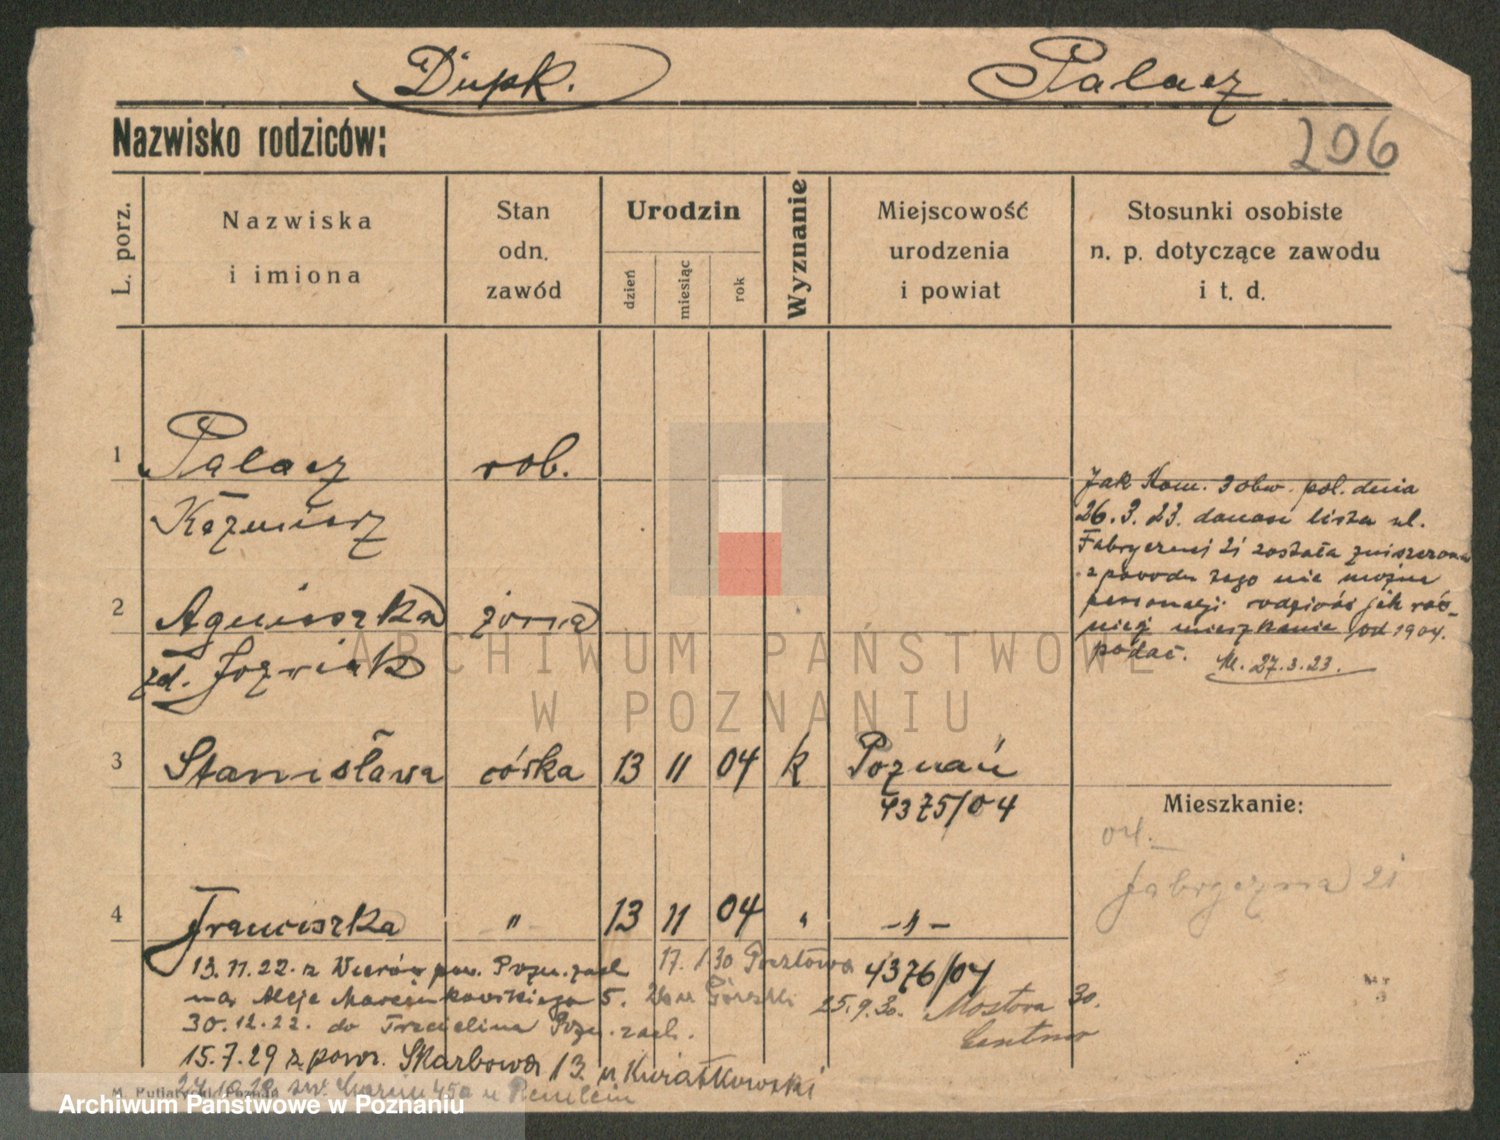 Dupk. Palacz
Nazwisko rodziców:
206
L. porz.
Nazwiska
i imiona
Stan
odn.
zawód
Urodzin
dzień
miesiąc
rok
Wyznanie
Miejscowość
urodzenia
i powiat
Stosunki osobiste
n. p. dotyczące zawodu
i t. d.
1 Palacz rob.
Kaźmierz
Jak Kom. 3 obw. pol. dnia
26.3.23. lista ul.
Fabrycznej 21 została
z powodu tego nie można
jak
mieszkanie od 1904.
podać. M. 27.3.23.
2 Agnieszka żona
zd. Joźwiak
ARCHIWUM PAŃSTWOWE
W POZNANIU
3 Stanisława córka 13 11 04 k Poznań
4375/04
Mieszkanie:
04.
Fabryczna 21
4 Franciszka " 13 11 04 " -"-
4376/04
13.11.22. z pow. Pozn. zach
na Aleje Marcinkowskiego 5.
17.1.30 Pocztowa
30.12.22. do Pozn. zach.
25.9.30. Mostowa 30.
15.7.29 z pow. Skarbowa 13 u Kwiatkowski
św. Marcin 45a u
Archiwum Państwowe w Poznaniu